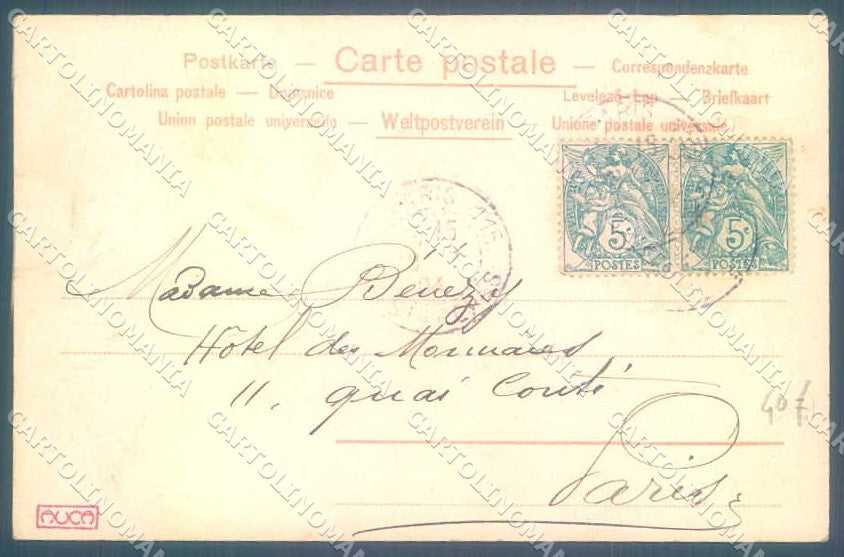 Postkarte — Carte postale — Correspondenzkarte
Cartolina postale — Dopisnice Levelező-Lap — Briefkaart
Union postale universelle — Weltpostverein — Unione postale universale
PARIS
5c 5c
POSTES POSTES
PARIS 115
15
Madame Benezy
Hôtel des Monnaies
11, quai Conti
Paris
40 F
AUCA
CARTOLINOMANIA